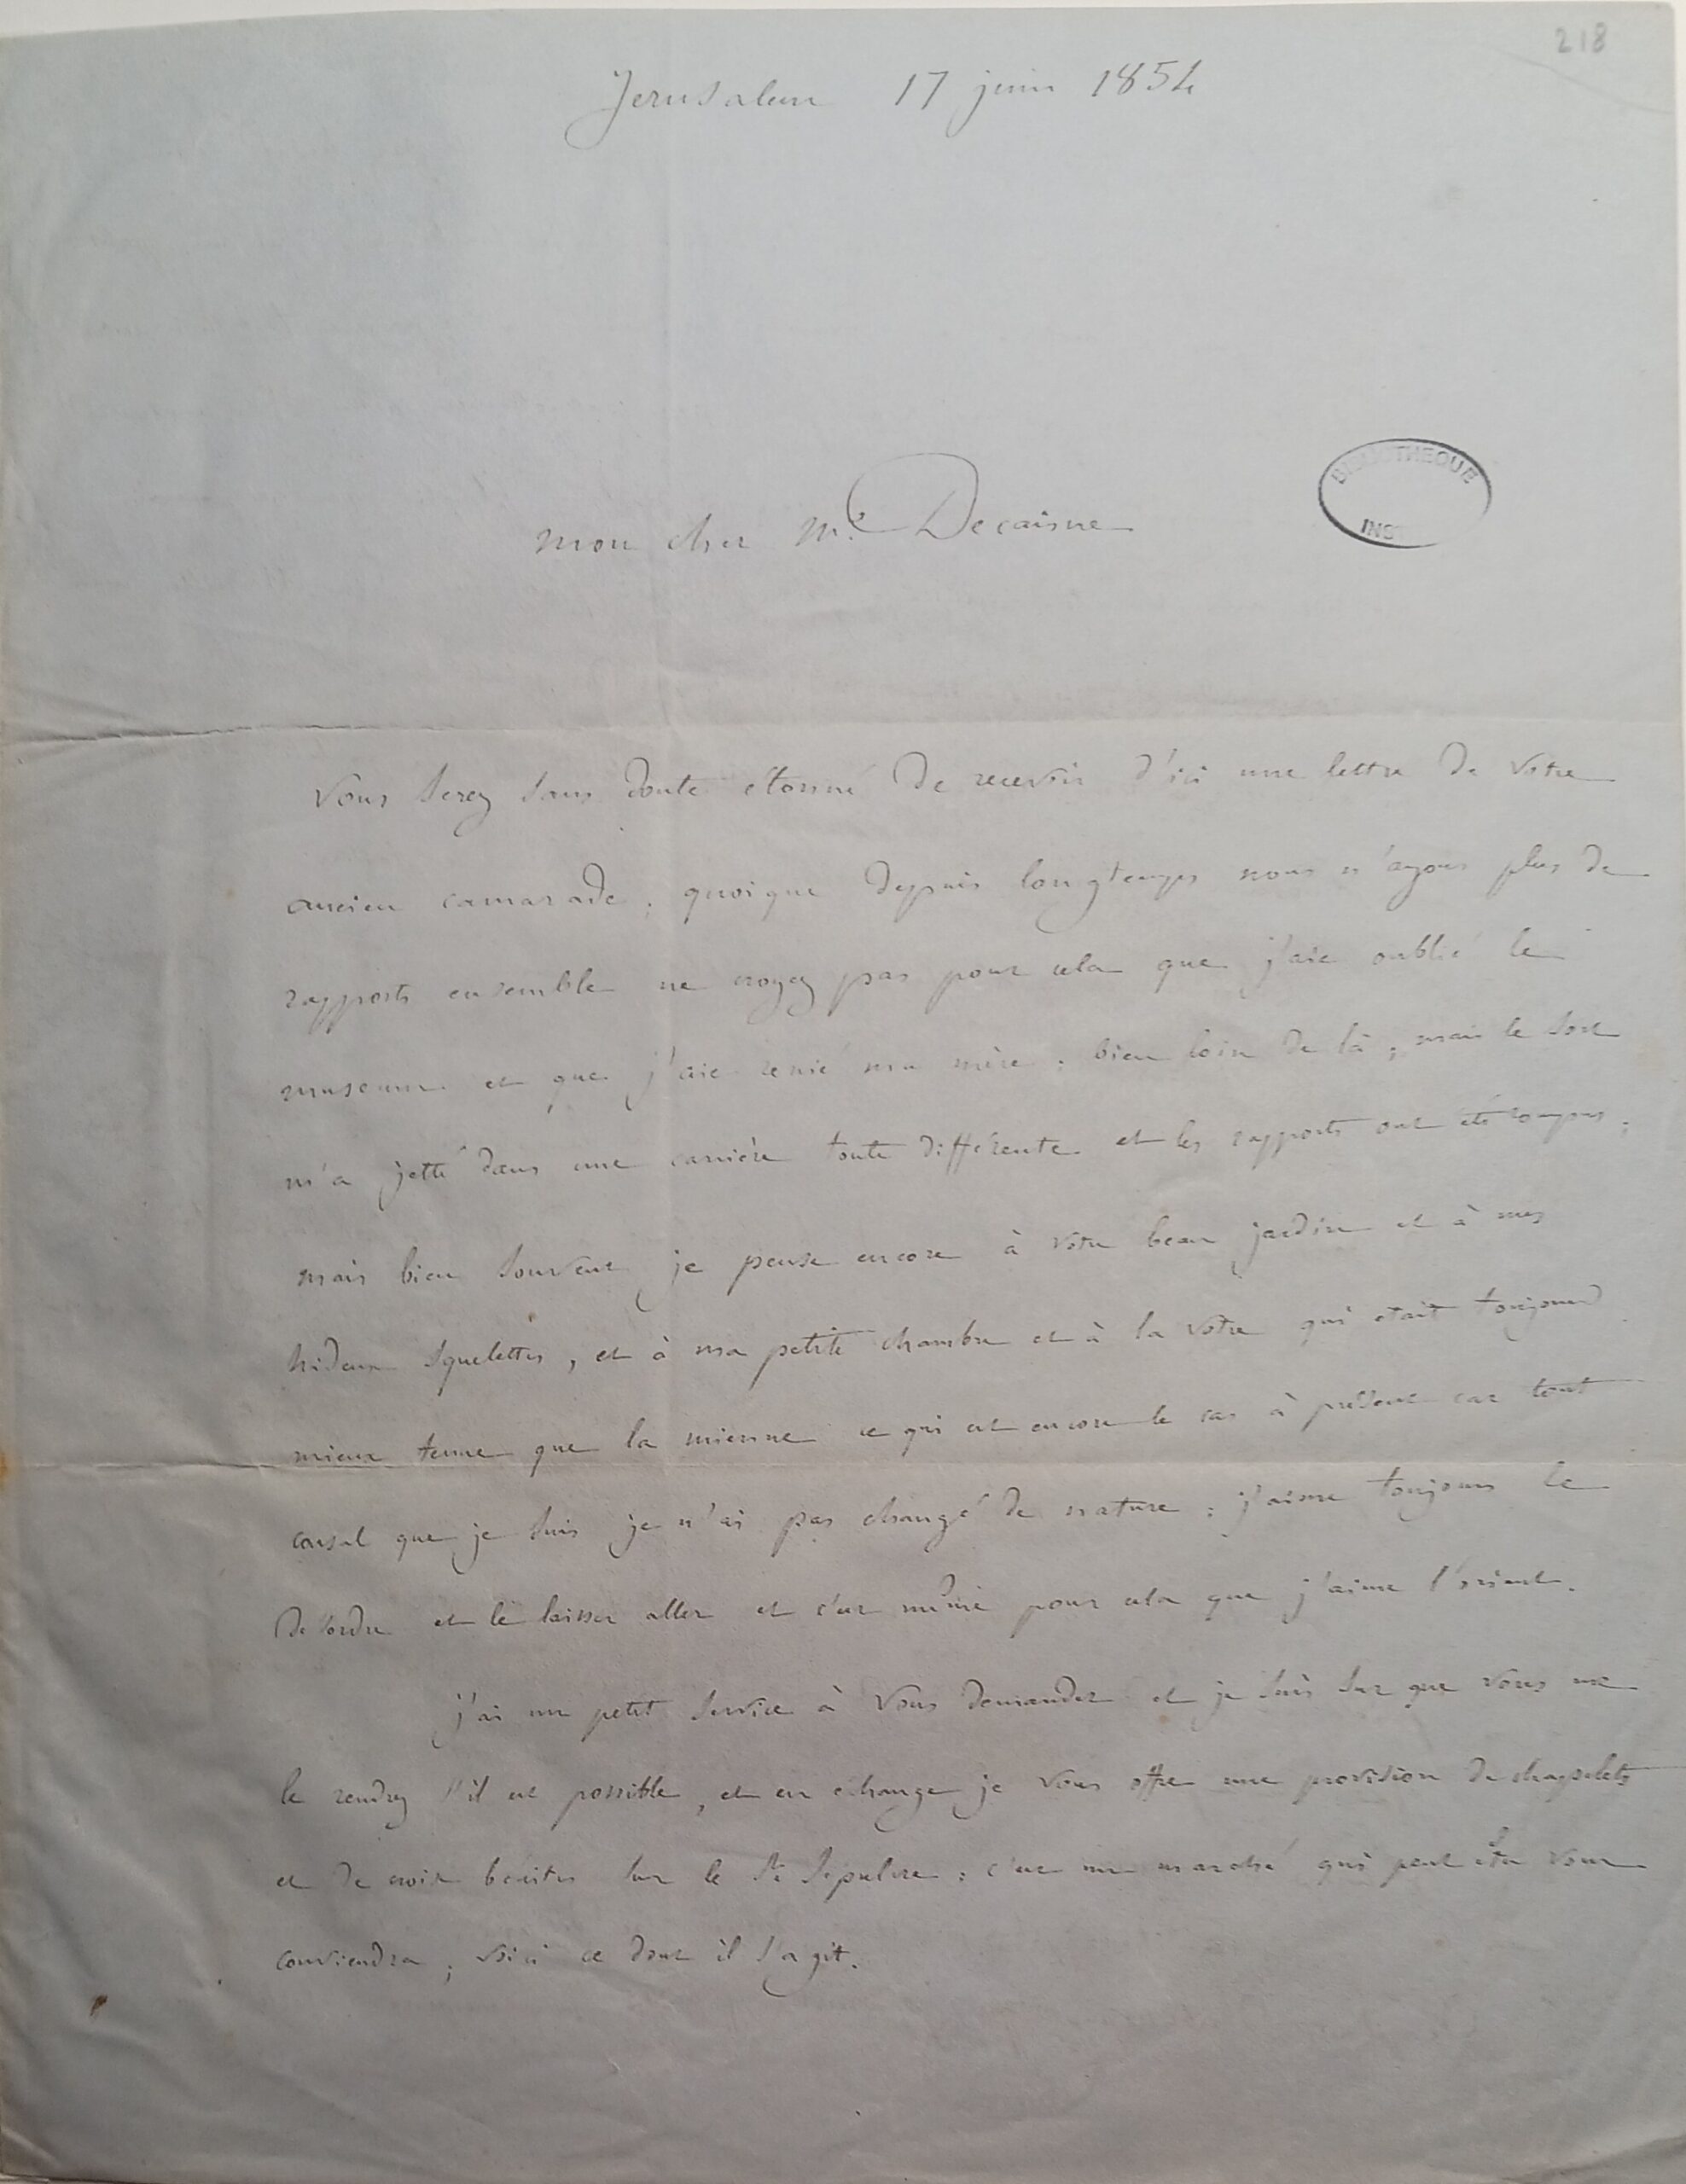 218
Jerusalem 17 juin 1854
mon cher Mr. Decaisne
BIBLIOTHEQUE
INST
Vous serez sans doute étonné de recevoir d'ici une lettre de votre
ancien camarade ; quoique depuis longtemps nous n'ayons plus de
rapports ensemble ne croyez pas pour cela que j'aie oublié le
museum et que j'aie renié ma mère : bien loin de là ; mais le sort
m'a jetté dans une carrière toute différente et les rapports ont été rompus ;
mais bien souvent je pense encore à votre beau jardin et à mes
hideux squelettes , et à ma petite chambre et à la votre qui etait toujours
mieux tenue que la mienne ce qui est encore le cas à présent car tout
consul que je suis je n'ai pas changé de nature : j'aime toujours le
désordre et le laisser aller et c'est même pour cela que j'aime l'orient.
j'ai un petit service à vous demander et je suis sur que vous me
le rendrez s'il est possible , et en échange je vous offre une provision de chapelets
et de croix bénites sur le St Sépulcre : c'est un marché qui peut être vous
conviendra ; voici ce dont il s'agit.